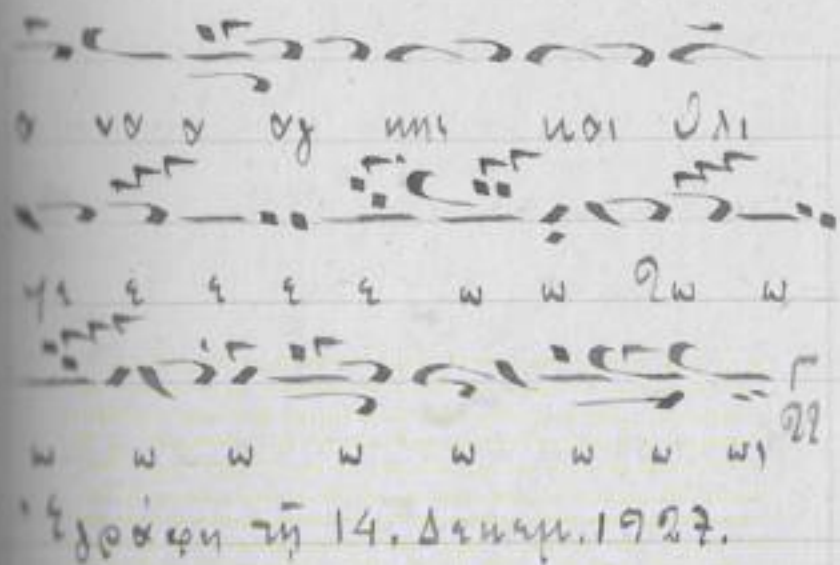 α να α αγ κης και θλι
ψε ε ε ε ε ω ω ω
ω ω ω ω ω ω ω ως
Ἐγράφη τῇ 14. Δεκεμ. 1927.